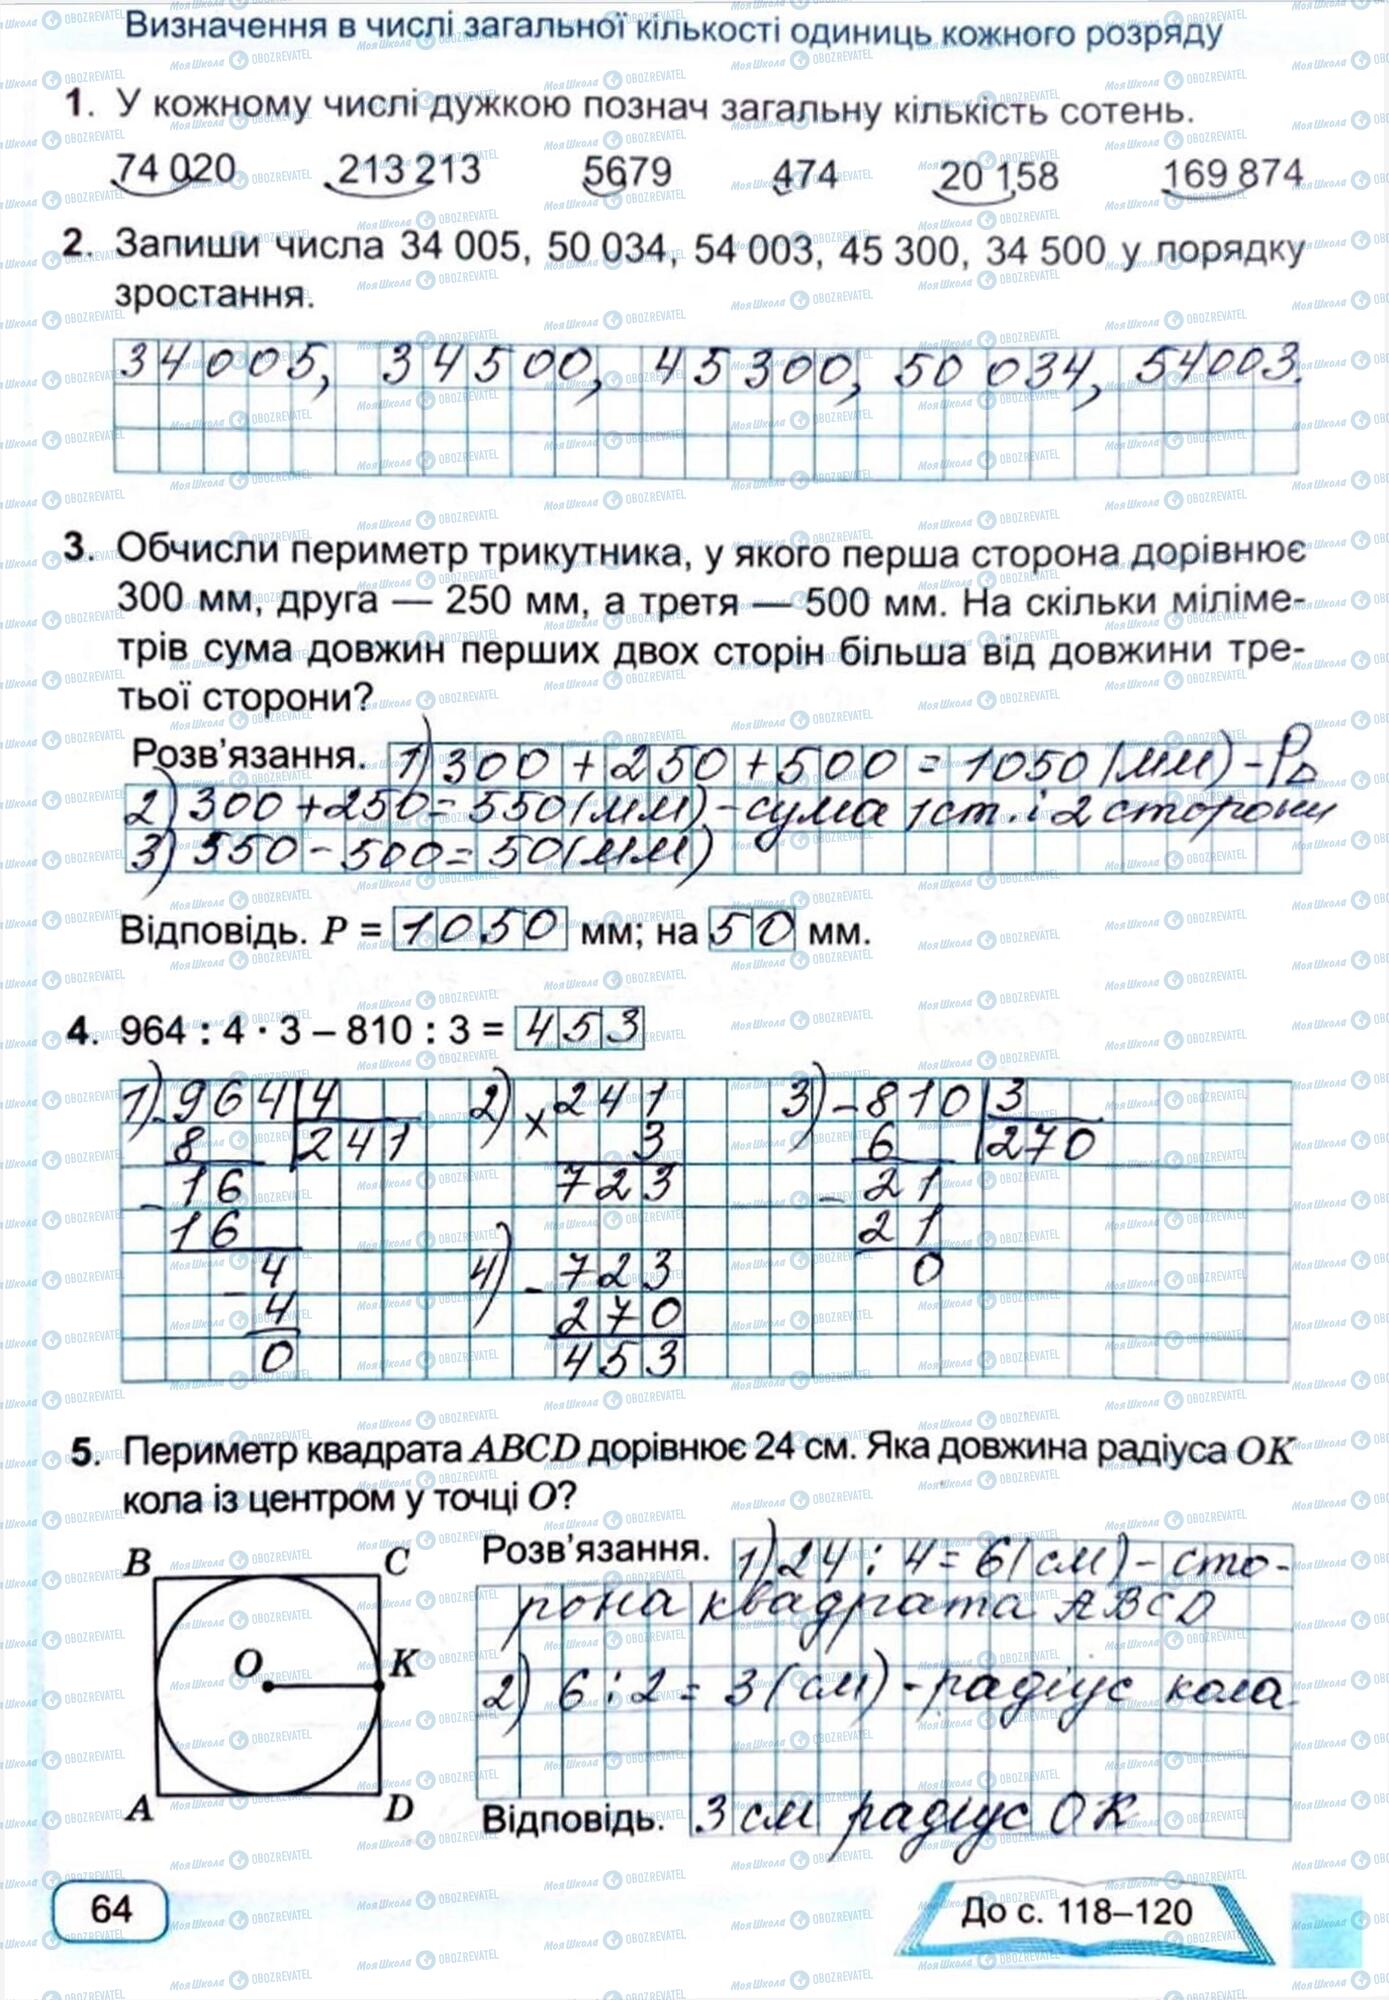 Визначення в числі загальної кількості одиниць кожного розряду
1. У кожному числі дужкою познач загальну кількість сотень.
74 020 213 213 5679 474 20 158 169 874
2. Запиши числа 34 005, 50 034, 54 003, 45 300, 34 500 у порядку
зростання.
34005, 34500, 45300, 50 034, 54003.
3. Обчисли периметр трикутника, у якого перша сторона дорівнює
300 мм, друга — 250 мм, а третя — 500 мм. На скільки міліме-
трів сума довжин перших двох сторін більша від довжини тре-
тьої сторони?
Розв'язання. 1) 300 + 250 + 500 = 1050 (мм) - P△
2) 300 + 250 = 550 (мм) - сума 1 ст. і 2 сторони
3) 550 - 500 = 50 (мм)
Відповідь. P = 1050 мм; на 50 мм.
4. 964 : 4 · 3 – 810 : 3 = 453
1) - 964 4 2) × 241 3) - 810 3
8 241 3 6 270
- 16 723 - 21
16 21
- 4 4) - 723 0
4 270
0 453
5. Периметр квадрата ABCD дорівнює 24 см. Яка довжина радіуса OK
кола із центром у точці O?
B C
O K
A D
Розв'язання. 1) 24 : 4 = 6 (см) - сто-
рона квадрата ABCD
2) 6 : 2 = 3 (см) - радіус кола
Відповідь. 3 см радіус OK
64
До с. 118–120
Моя Школа OBOZREVATEL